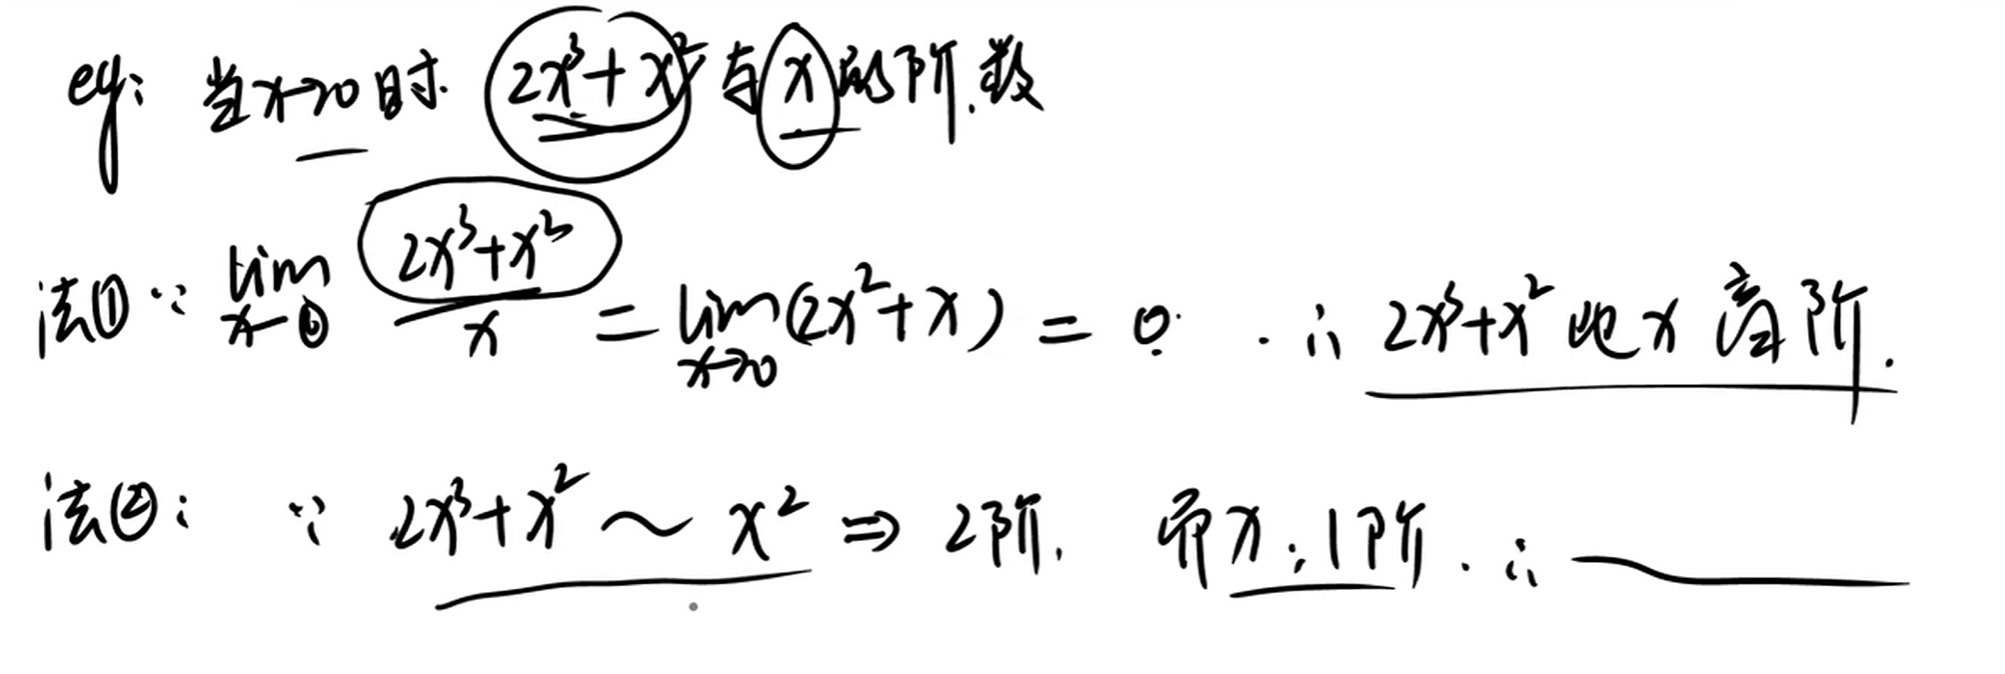 eg: 当x→0时 2x³+x² 与 x 的阶数
法① ∵ lim x→0 (2x³+x²)/x = lim x→0 (2x²+x) = 0. ∴ 2x³+x² 比 x 高阶.
法②: ∵ 2x³+x² ~ x² ⇒ 2阶. 而x: 1阶. ∴